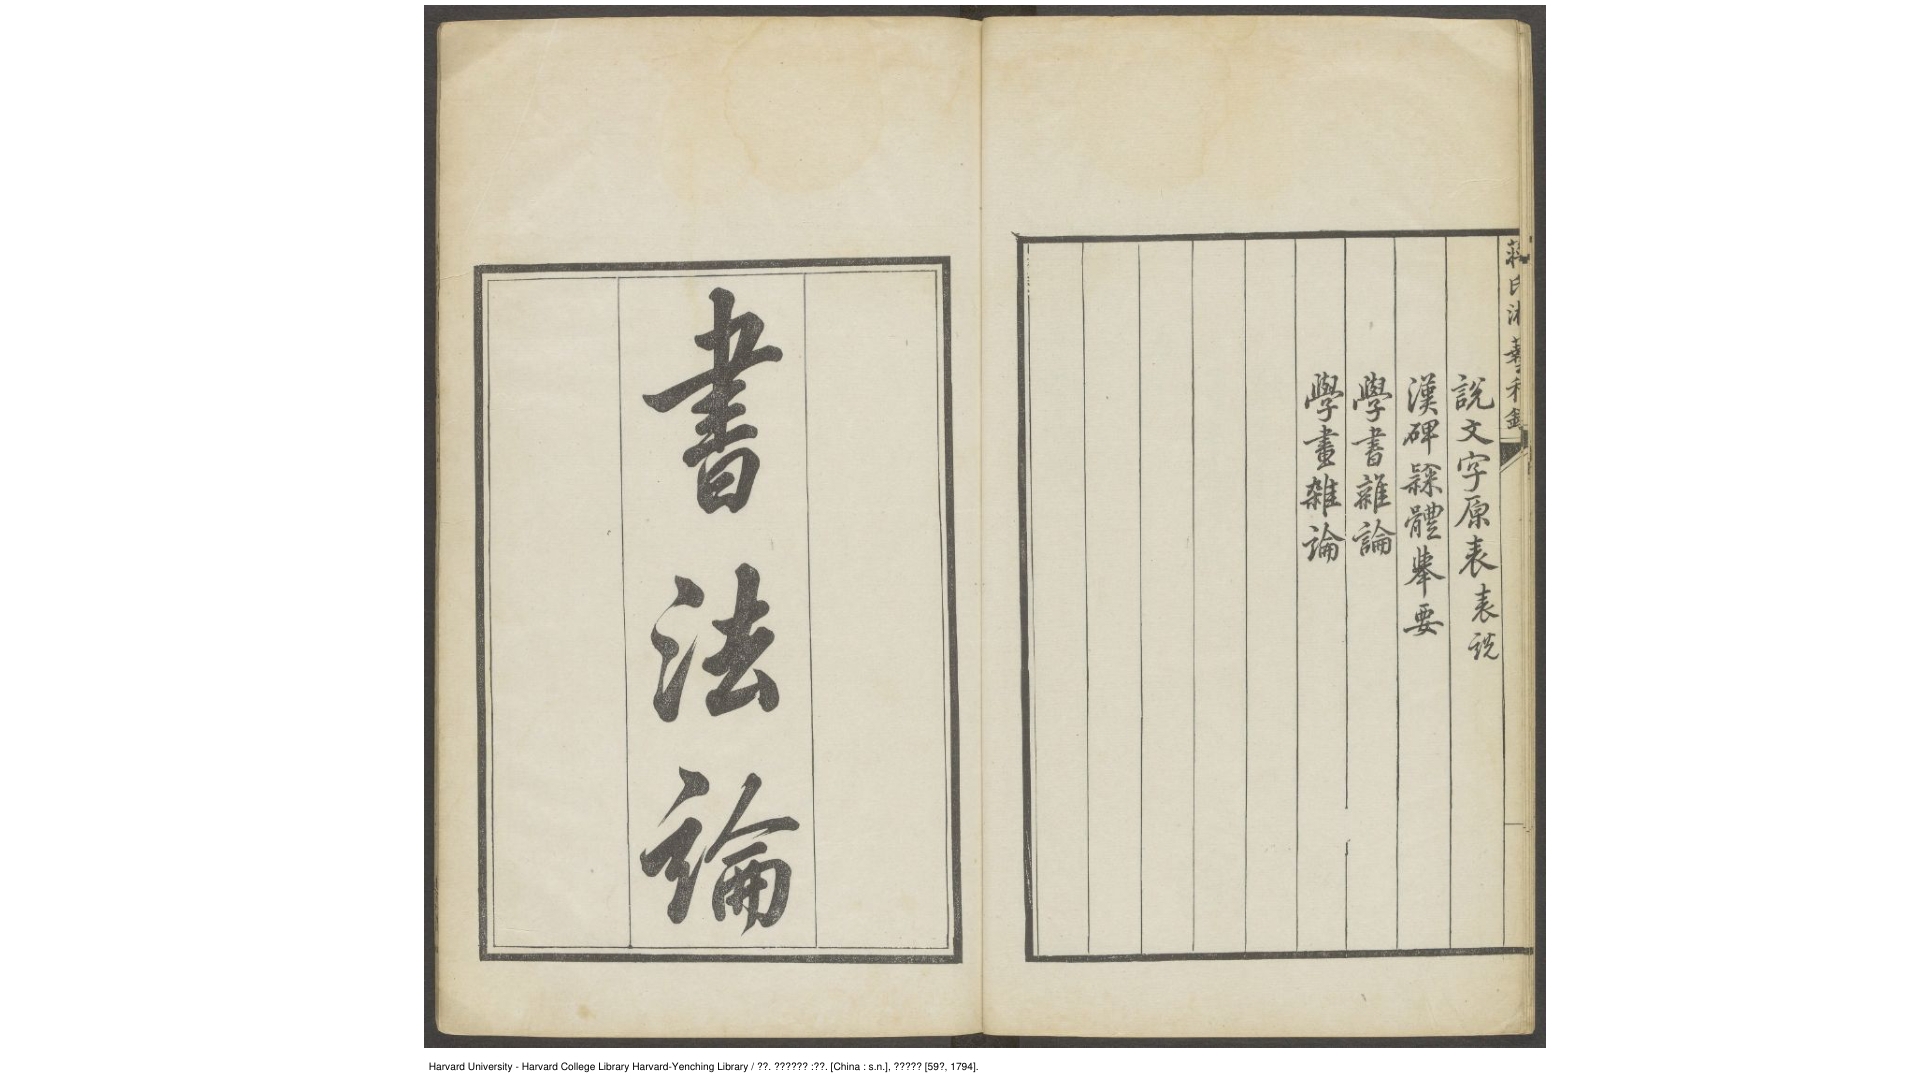 蔣氏游藝秘錄
說文字原表表說
漢碑隸體舉要
學書雜論
學畫雜論
書法論
Harvard University - Harvard College Library Harvard-Yenching Library / ??. ?????? :??. [China : s.n.], ????? [59?, 1794].